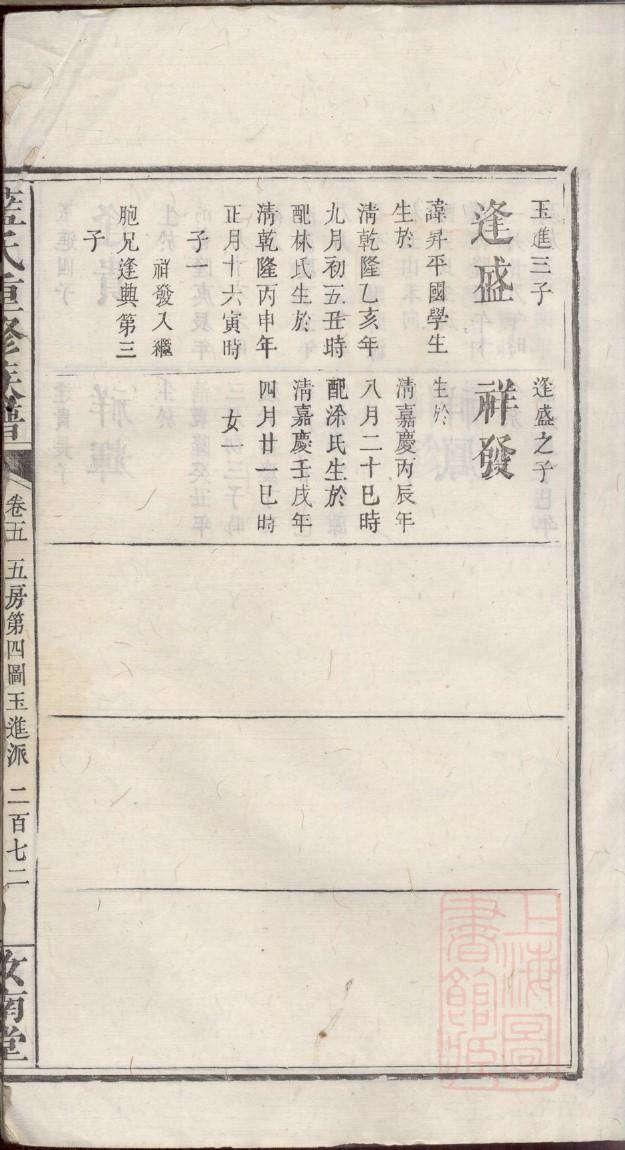 玉進三子
逢盛
諱昇平國學生
生於
清乾隆乙亥年
九月初五丑時
配林氏生於
清乾隆丙申年
正月十六寅時
子一
祥發入繼
胞兄逢興第三
子
逢盛之子
祥發
生於
清嘉慶丙辰年
八月二十巳時
配涂氏生於
清嘉慶壬戌年
四月廿一巳時
女一
藍氏重修族譜
卷五
五房第四圖玉進派
二百七二
汝南堂
上海圖
書館藏